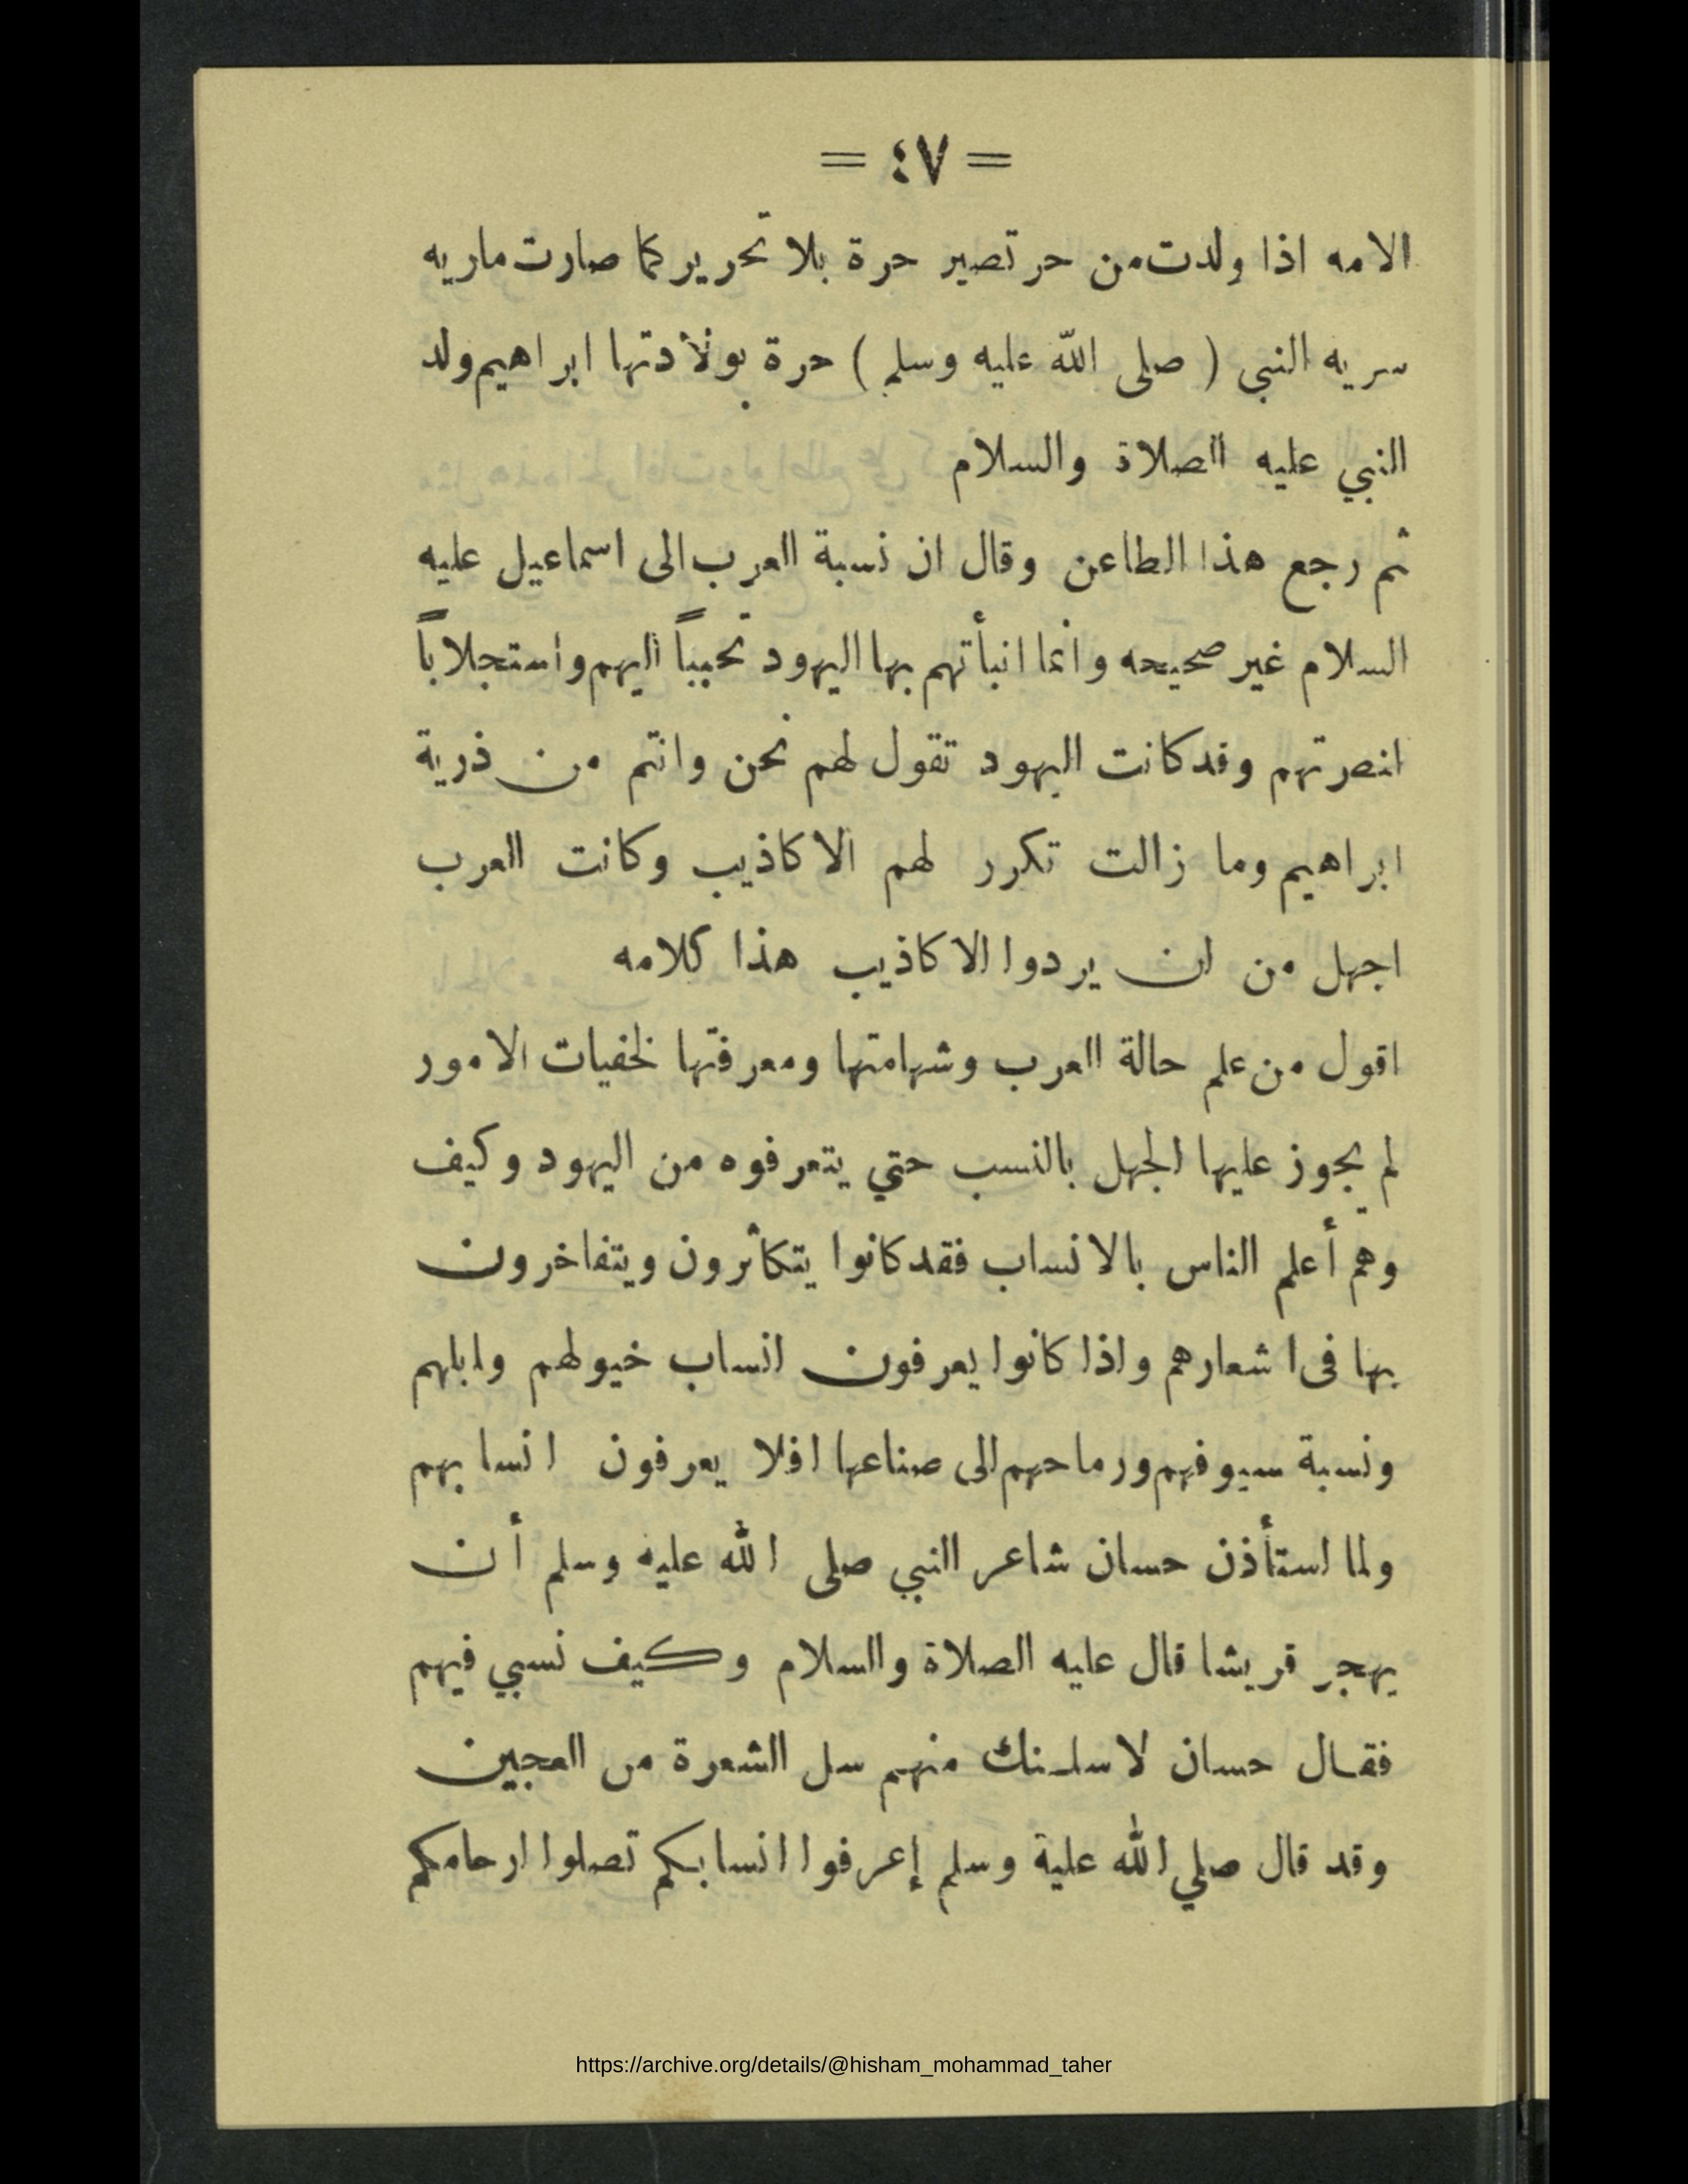 = ٤٧ =
الامه اذا ولدت من حر تصير حرة بلا تحرير كما صارت ماريه
سريه النبى ( صلى الله عليه وسلم ) حرة بولادتها ابراهيم ولد
النبي عليه الصلاة والسلام
ثم رجع هذا الطاعن وقال ان نسبة العرب الى اسماعيل عليه
السلام غير صحيحه وانما انبأتهم بها اليهود تحبباً اليهم واستجلاباً
لنصرتهم وقد كانت اليهود تقول لهم نحن وانتم من ذرية
ابراهيم وما زالت تكرر لهم الاكاذيب وكانت العرب
اجهل من ان يردوا الاكاذيب هذا كلامه
اقول من علم حالة العرب وشهامتها ومعرفتها لخفيات الامور
لم يجوز عليها الجهل بالنسب حتي يتعرفوه من اليهود وكيف
وهم أعلم الناس بالانساب فقد كانوا يتكاثرون ويتفاخرون
بها فى اشعارهم واذا كانوا يعرفون انساب خيولهم وابلهم
ونسبة سيوفهم ورماحهم الى صناعها افلا يعرفون انسابهم
ولما استأذن حسان شاعر النبي صلى الله عليه وسلم أن
يهجر قريشا قال عليه الصلاة والسلام وكيف نسبي فيهم
فقال حسان لاسلنك منهم سل الشعرة من العجين
وقد قال صلي الله علية وسلم إعرفوا انسابكم تصلوا ارحامكم
https://archive.org/details/@hisham_mohammad_taher